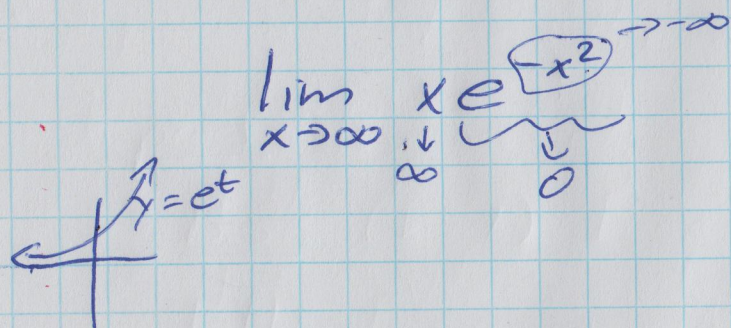 lim x e^{-x²} → -∞
x→∞ ↓ ↓
∞ 0
y = e^t